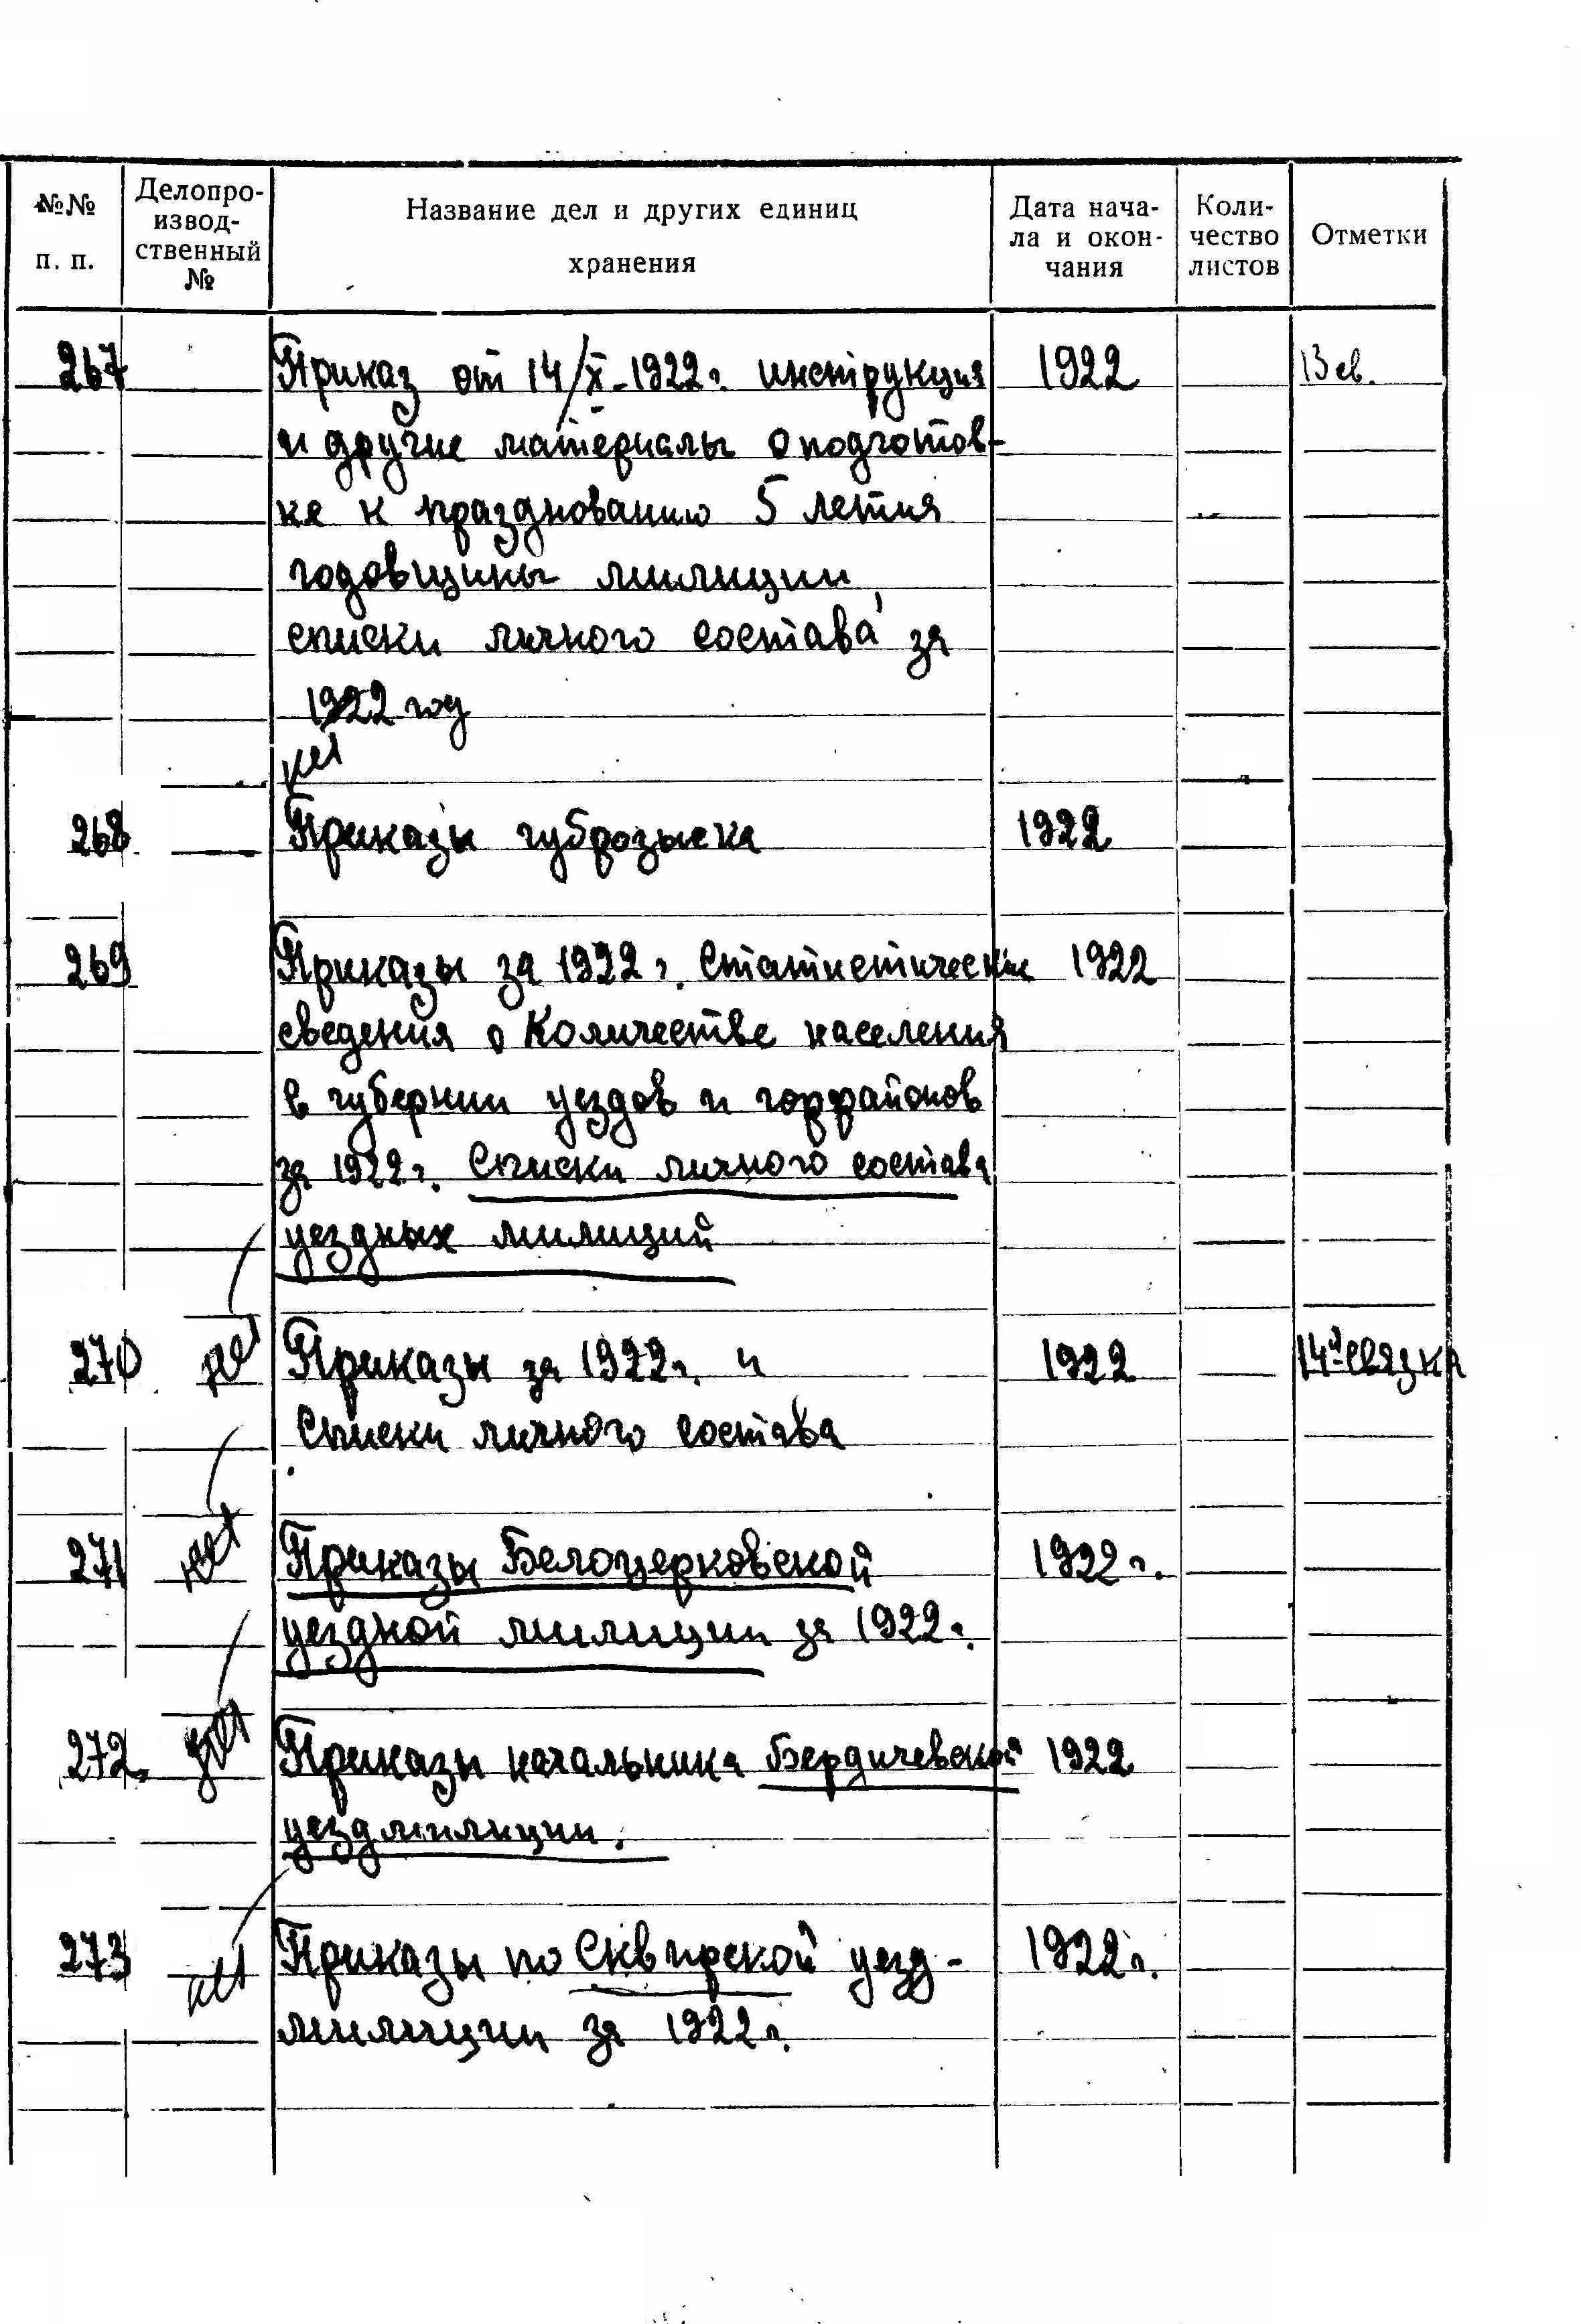 №№ п. п.
Делопро-
извод-
ственный
№
Название дел и других единиц
хранения
Дата нача-
ла и окон-
чания
Коли-
чество
листов
Отметки
267 Приказ от 14/X-1922г. инструкция 1922 13 св.
и другие материалы о подготов-
ке к празднованию 5 летия
годовщины милиции,
списки личного состава за
1922 год
нет
268 Приказы губрозыска 1922
269 Приказы за 1922 г. Статистические 1922
сведения о количестве населения
в губернии уездов и горрайонов
за 1922г. Списки личного состава
уездных милиций
270 нет Приказы за 1922г. и 1922 14я связка
Списки личного состава
271 нет Приказы Белоцерковской 1922 г.
уездной милиции за 1922г.
272. нет Приказы начальника Бердичевской 1922
уездмилиции.
273 нет Приказы по Сквирской уезд- 1922г.
милиции за 1922г.